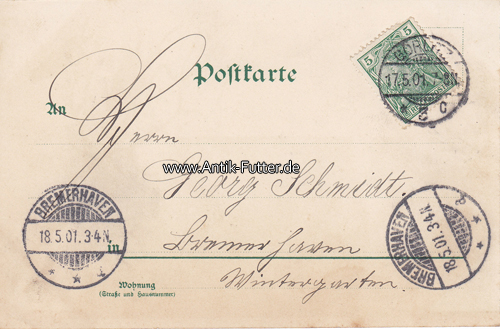 5 5
GÖRLITZ
17.5.01. 7-8N.
* 3 c
Postkarte
An
Herrn
www.Antik-Futter.de
Georg Schmidt.
BREMERHAVEN
18.5.01. 3-4N.
* * *
BREMERHAVEN
18.5.01. 3-4N.
in
Bremerhaven
Wintergarten.
Wohnung
(Straße und Hausnummer)